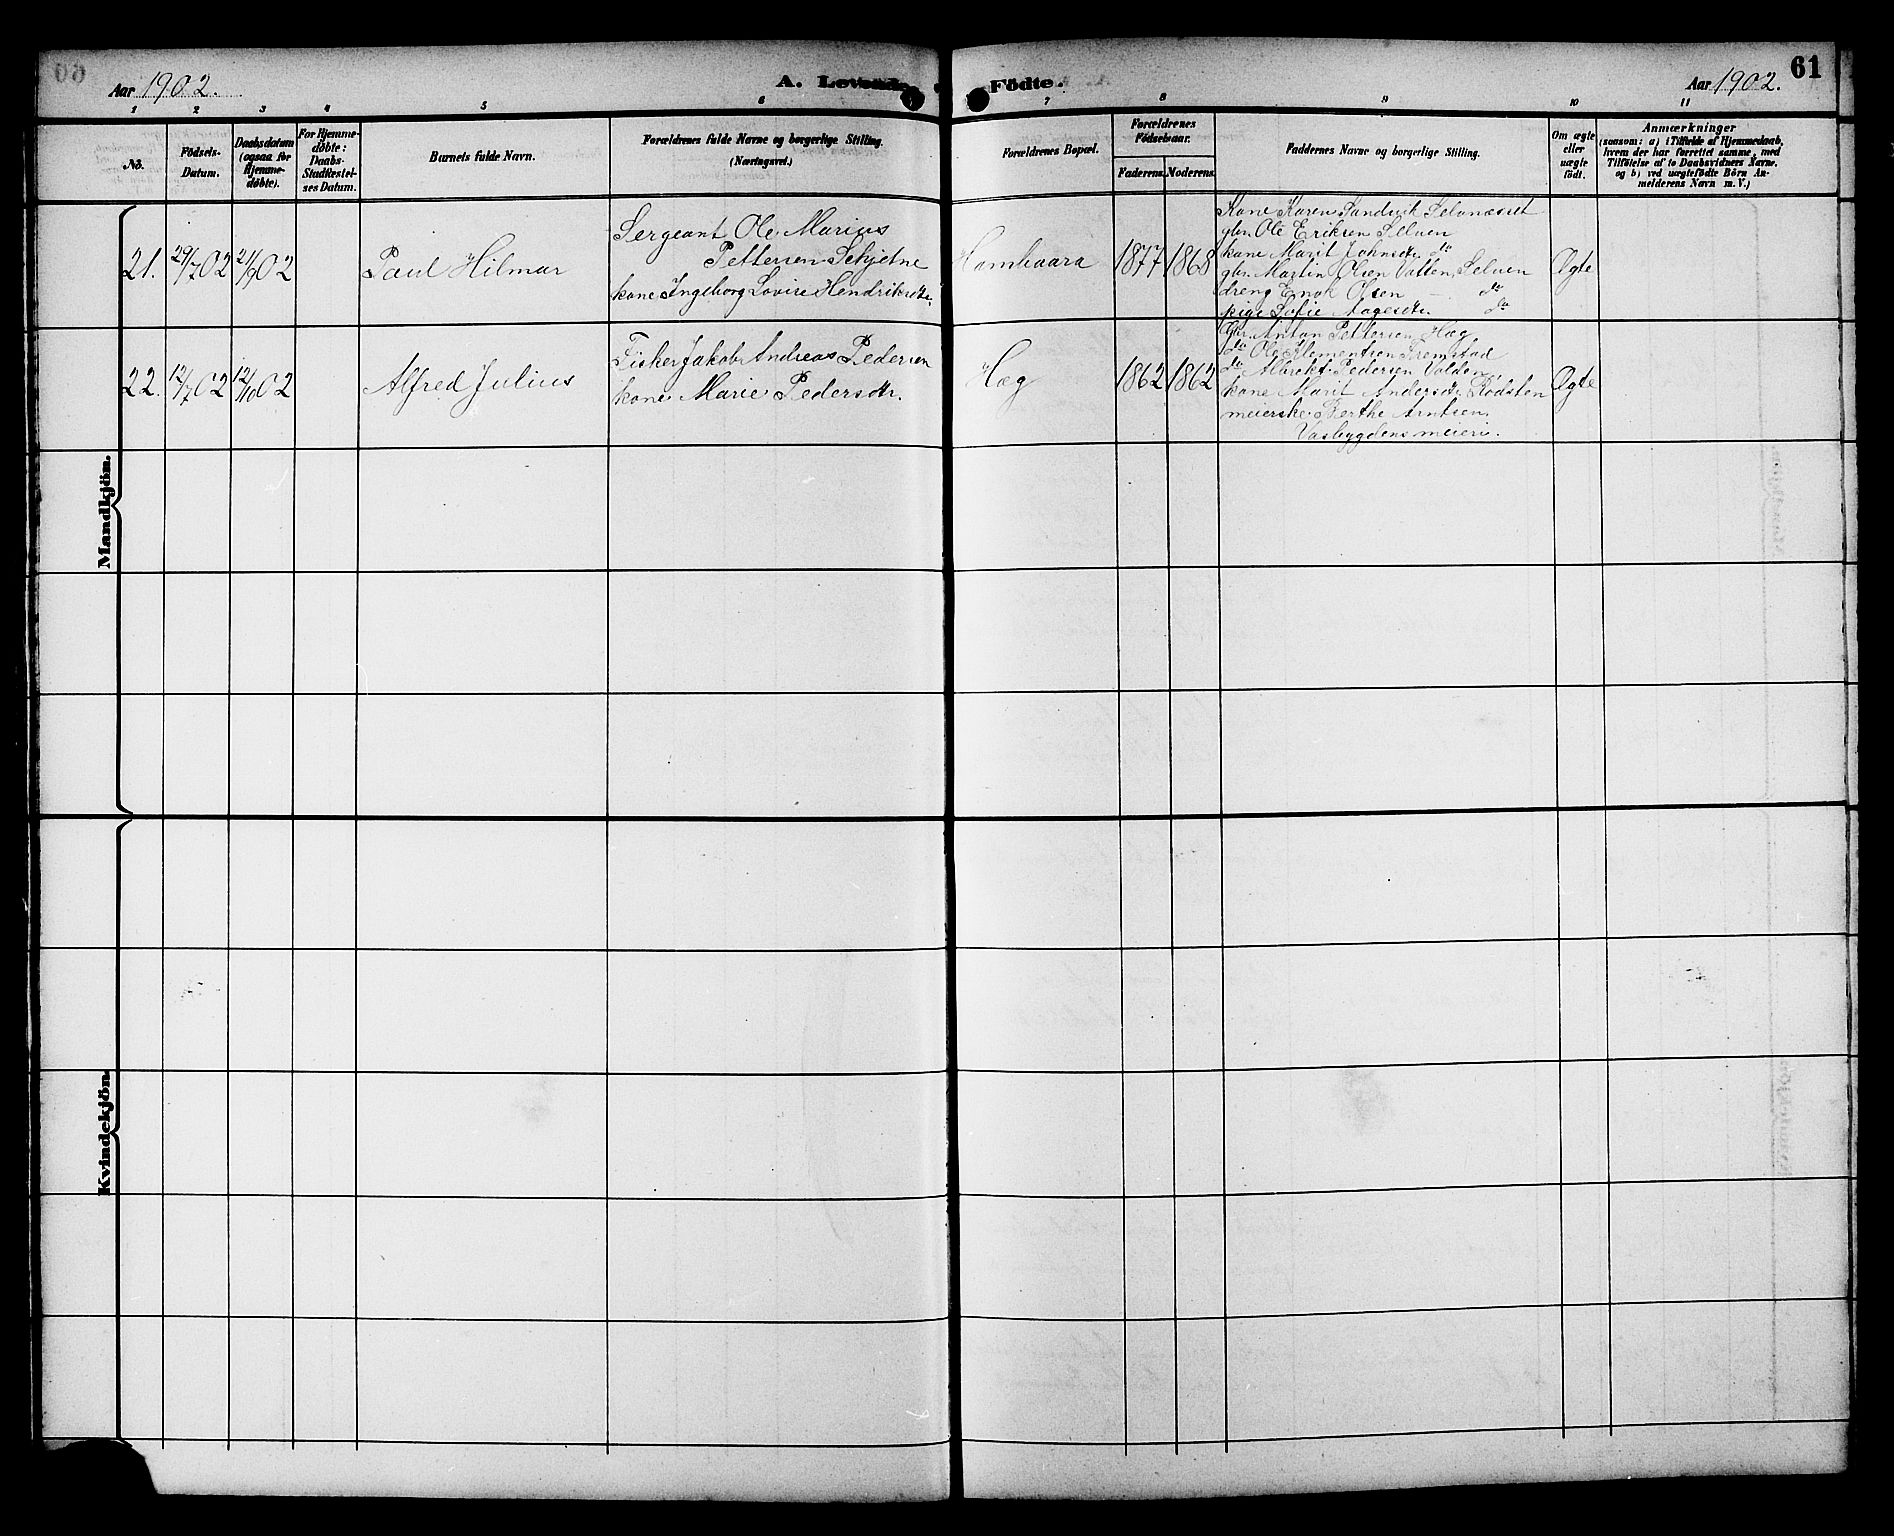 Aar 1902.
A. Levende Födte.
Aar 1902.
61
1 2 3 4 5 6 7 8 9 10 11
No.
Födsels-
Datum.
Daabsdatum
(ogsaa for
Hjemme-
döbte).
For Hjemme-
döbte:
Daabs-
Stadfæstel-
ses Datum.
Barnets fulde Navn.
Forældrenes fulde Navne og borgerlige Stilling.
(Næringsvei.)
Forældrenes Bopæl.
Forældrenes
Födselsaar.
Faderens.
Moderens.
Faddernes Navne og borgerlige Stilling.
Om ægte
eller
uægte
födt.
Anmærkninger
(saasom: a) i Tilfælde af Hjemmedaab,
hvem der har forrettet samme, med
Tilföielse af to Daabsvidners Navne,
og b) ved uægtefödte Börn An-
melderens Navn m. V.)
Mandkjön.
21.
29/7 02
21/9 02
Paul Hilmar
Sergeant Ole Marius
Pettersen Schjetne
kone Ingeborg Lovise Hendriksdtr.
Hambaara
1877
1868
Kone Karen Sandvik Selvnæsset
gbr. Ole Eriksen Selven
kone Marit Johnsdtr. do
gbr. Martin Olsen Vatten, Selven
dreng Enok Olsen - do
pige Sofie Aagesdtr. do
Ægte
22.
12/7 02
12/10 02
Alfred Julius
Fisker Jakob Andreas Pedersen
kone Marie Pedersdtr.
Hæg
1862
1862
Gbr. Anton Pettersen Hæg
do Ole Klementsen Fremstad
do Albrekt Pedersen Valden
kone Marit Andersdtr. Rodsten
meierske Berthe Arntsen,
Vasbygdens meieri.
Ægte
Kvindekjön.